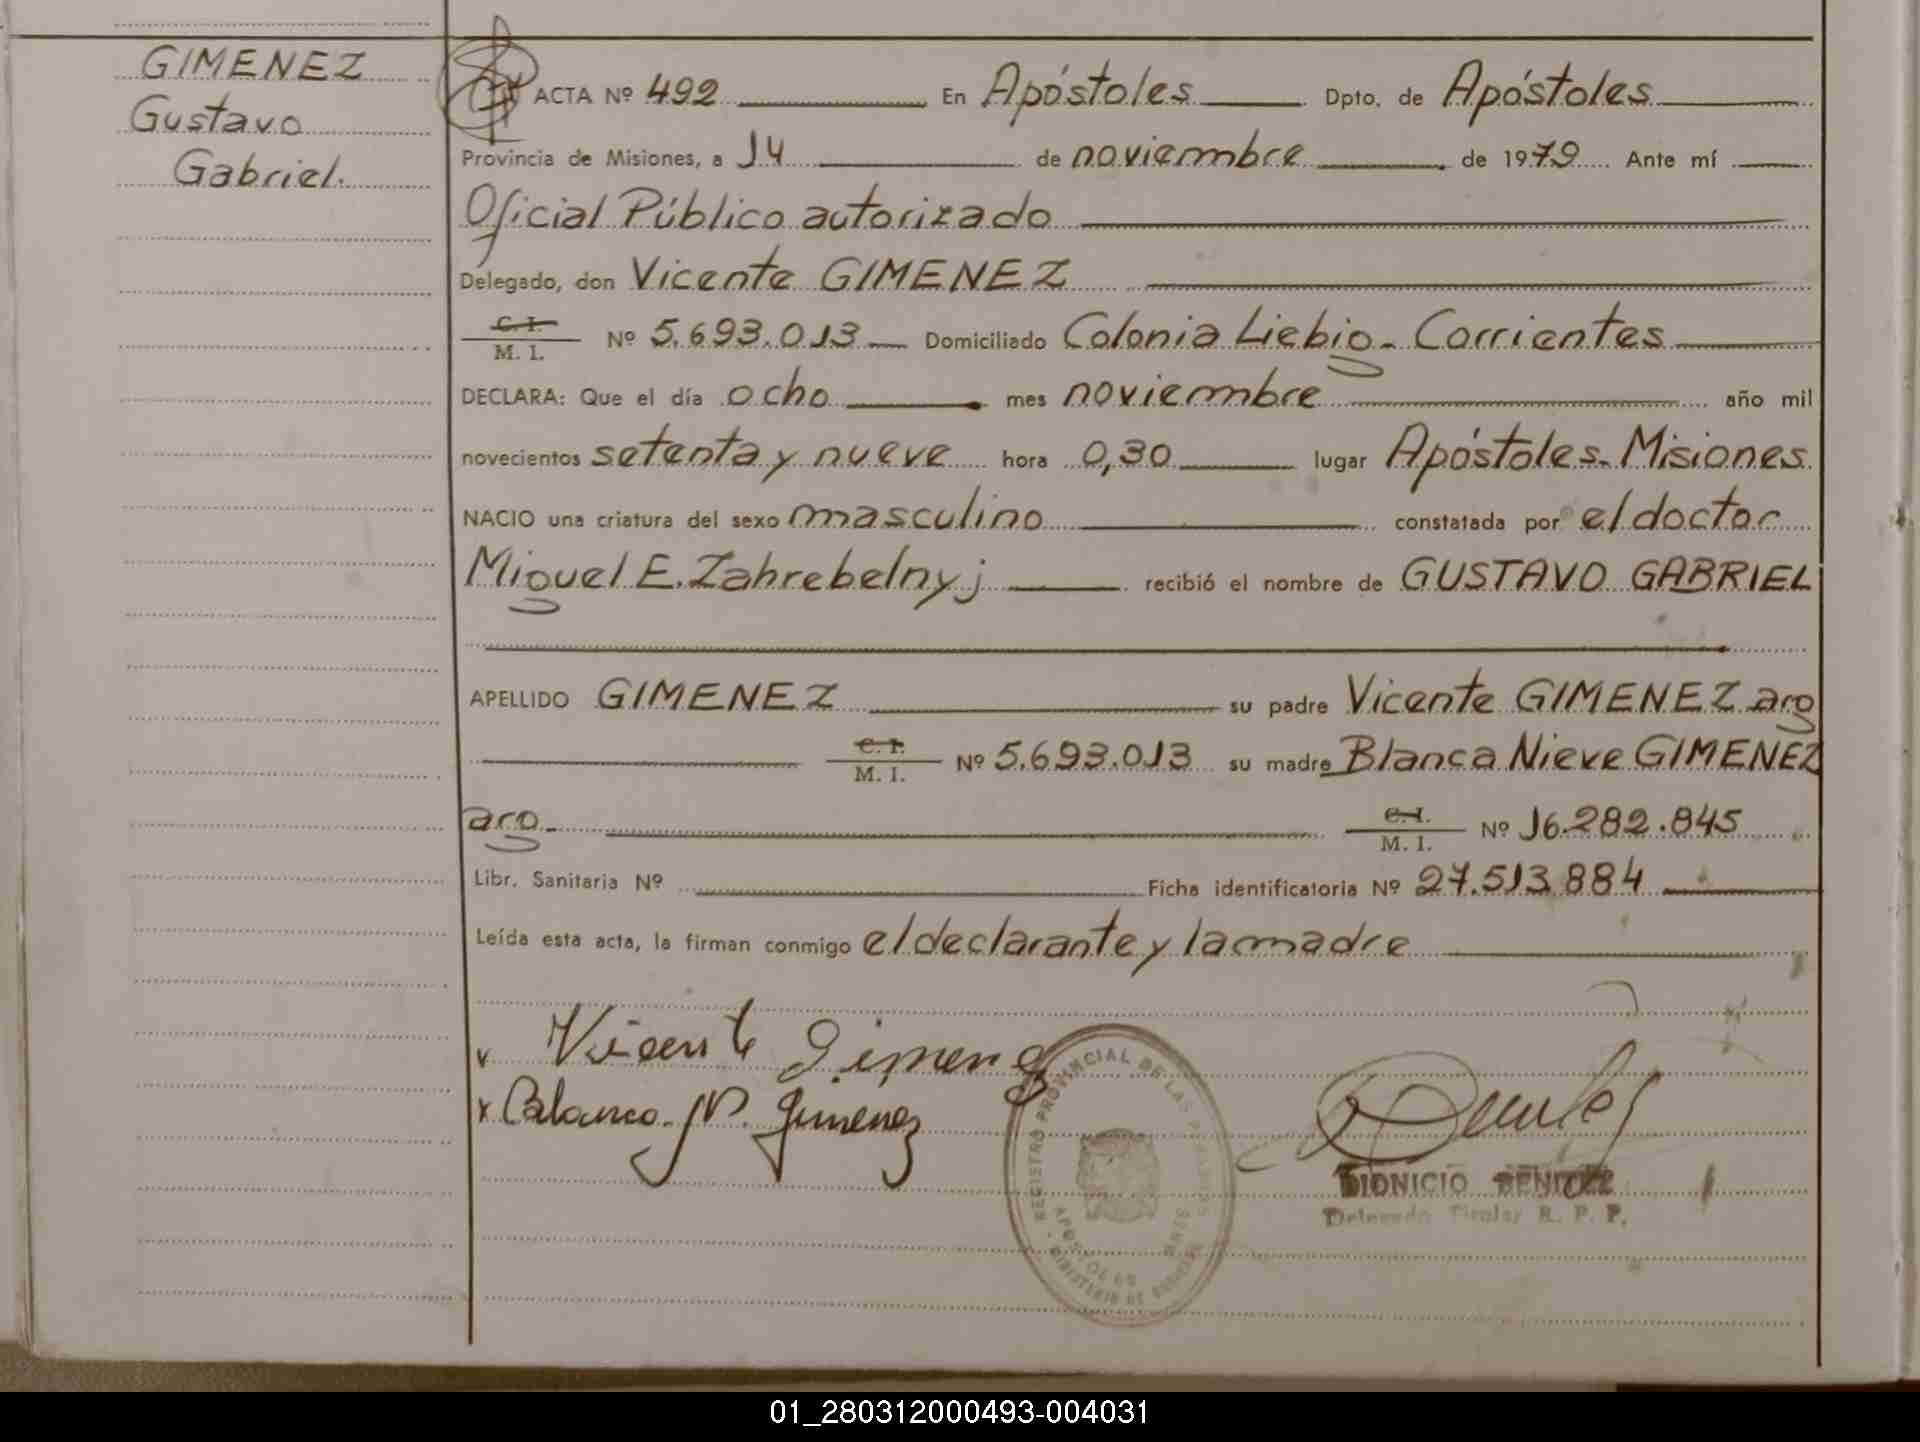 GIMENEZ
Gustavo
Gabriel.
ACTA Nº 492 En Apóstoles Dpto. de Apóstoles
Provincia de Misiones, a 14 de noviembre de 1979 Ante mí
Oficial Público autorizado
Delegado, don Vicente GIMENEZ
C. I.
M. I. Nº 5.693.013 Domiciliado Colonia Liebig - Corrientes
DECLARA: Que el día ocho mes noviembre año mil
novecientos setenta y nueve hora 0,30 lugar Apóstoles. Misiones
NACIO una criatura del sexo masculino constatada por el doctor
Miguel E. Zahrebelnyj recibió el nombre de GUSTAVO GABRIEL
APELLIDO GIMENEZ su padre Vicente GIMENEZ arg
C. I.
M. I. Nº 5.693.013 su madre Blanca Nieve GIMENEZ
arg.
C. I.
M. I. Nº 16.282.845
Libr. Sanitaria Nº Ficha identificatoria Nº 27.513.884
Leída esta acta, la firman conmigo el declarante y la madre
Vicente Gimenez
Blanca N. Gimenez
REGISTRO PROVINCIAL DE LAS PERSONAS
APOSTOLES
MINISTERIO DE
DIONICIO BENITEZ
Delegado Titular R. P. P.
01_280312000493-004031